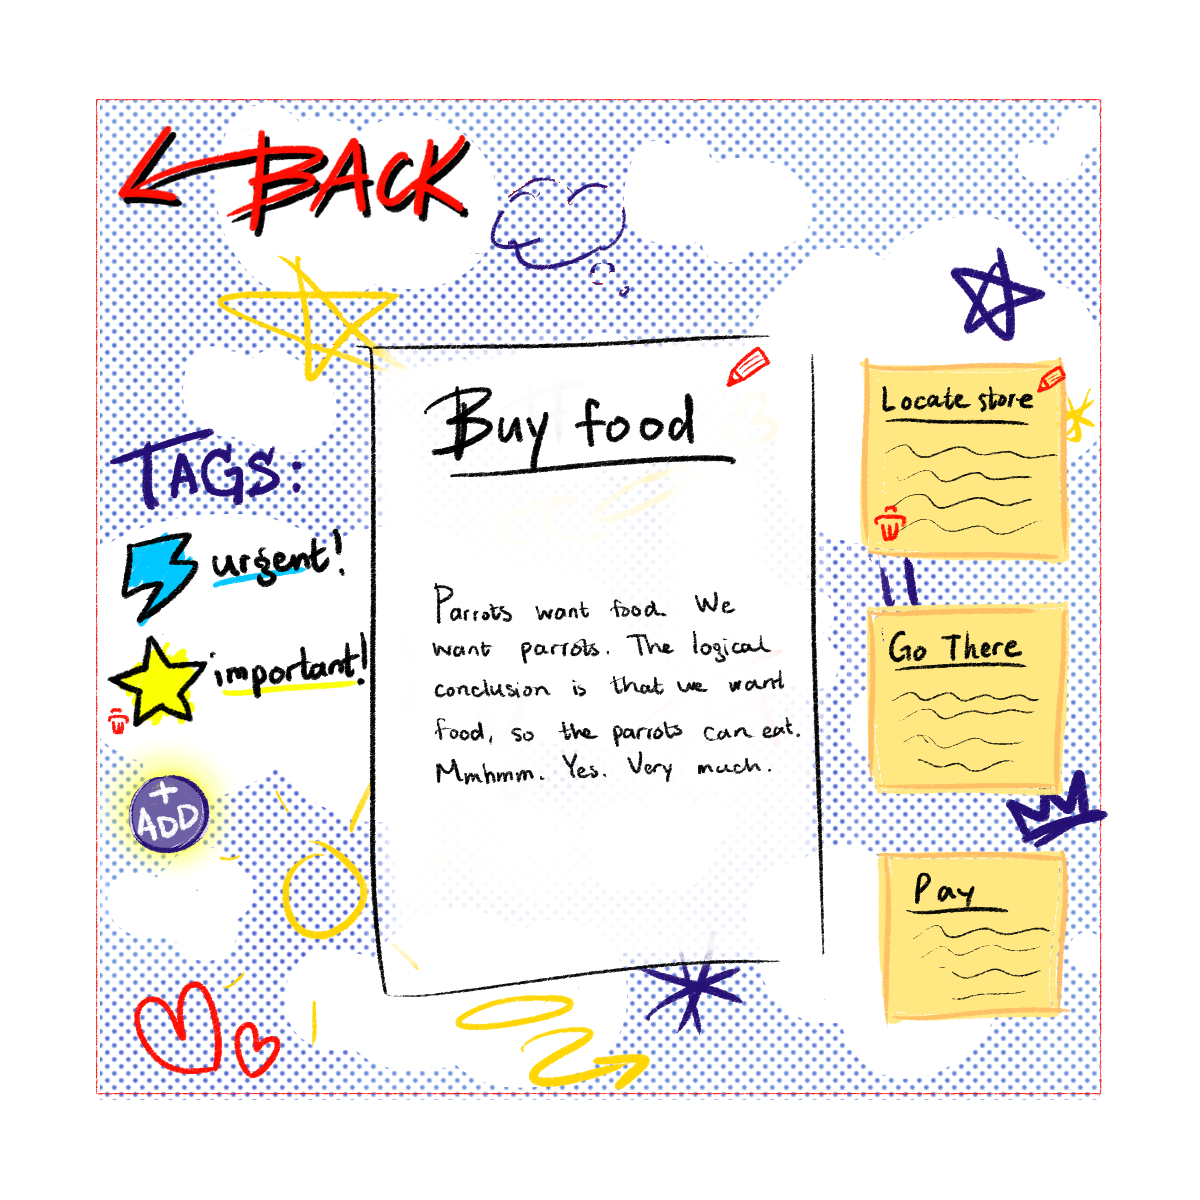 BACK
Buy food
TAGS:
urgent!
important!
+
ADD
Parrots want food. We
want parrots. The logical
conclusion is that we want
food, so the parrots can eat.
Mmhmm. Yes. Very much.
Locate store
Go There
Pay